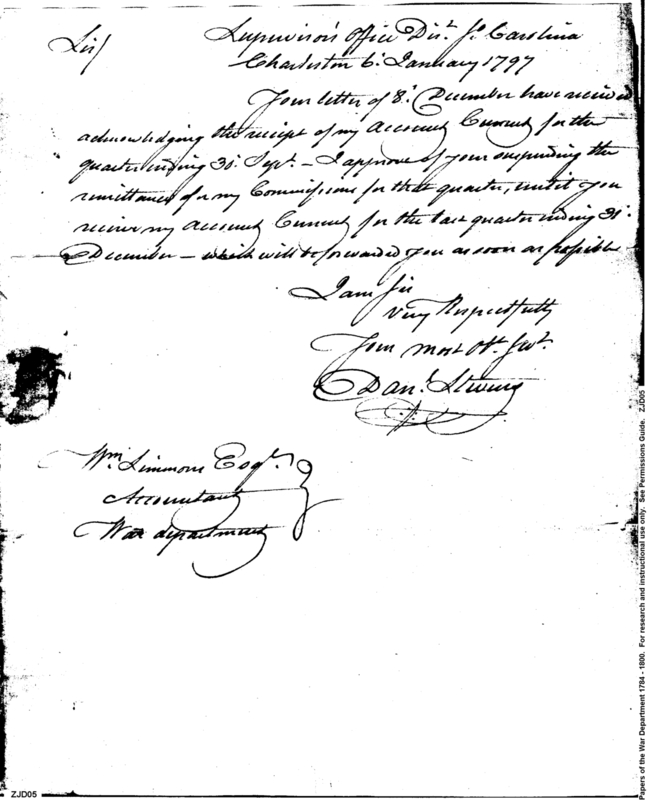 Supervisor's Office Dist. So. Carolina
Sir/
Charleston 6. January 1797
Your letter of 8. December have received
acknowledging the receipt of my Account Current for the
quarter ending 30. Sept. – I approve of your suspending the
remittance of my Commissions for that quarter, untill you
receive my Account Current for the last quarter ending 31.
December – which will be forwarded you as soon as possible
I am Sir
Very Respectfully
Your most Ob. Servt.
Danl. Stevens
Wm. Simmons Esqr.
Accountant
War department
ZJD05
Papers of the War Department 1784 - 1800. For research and instructional use only. See Permissions Guide. ZJD05